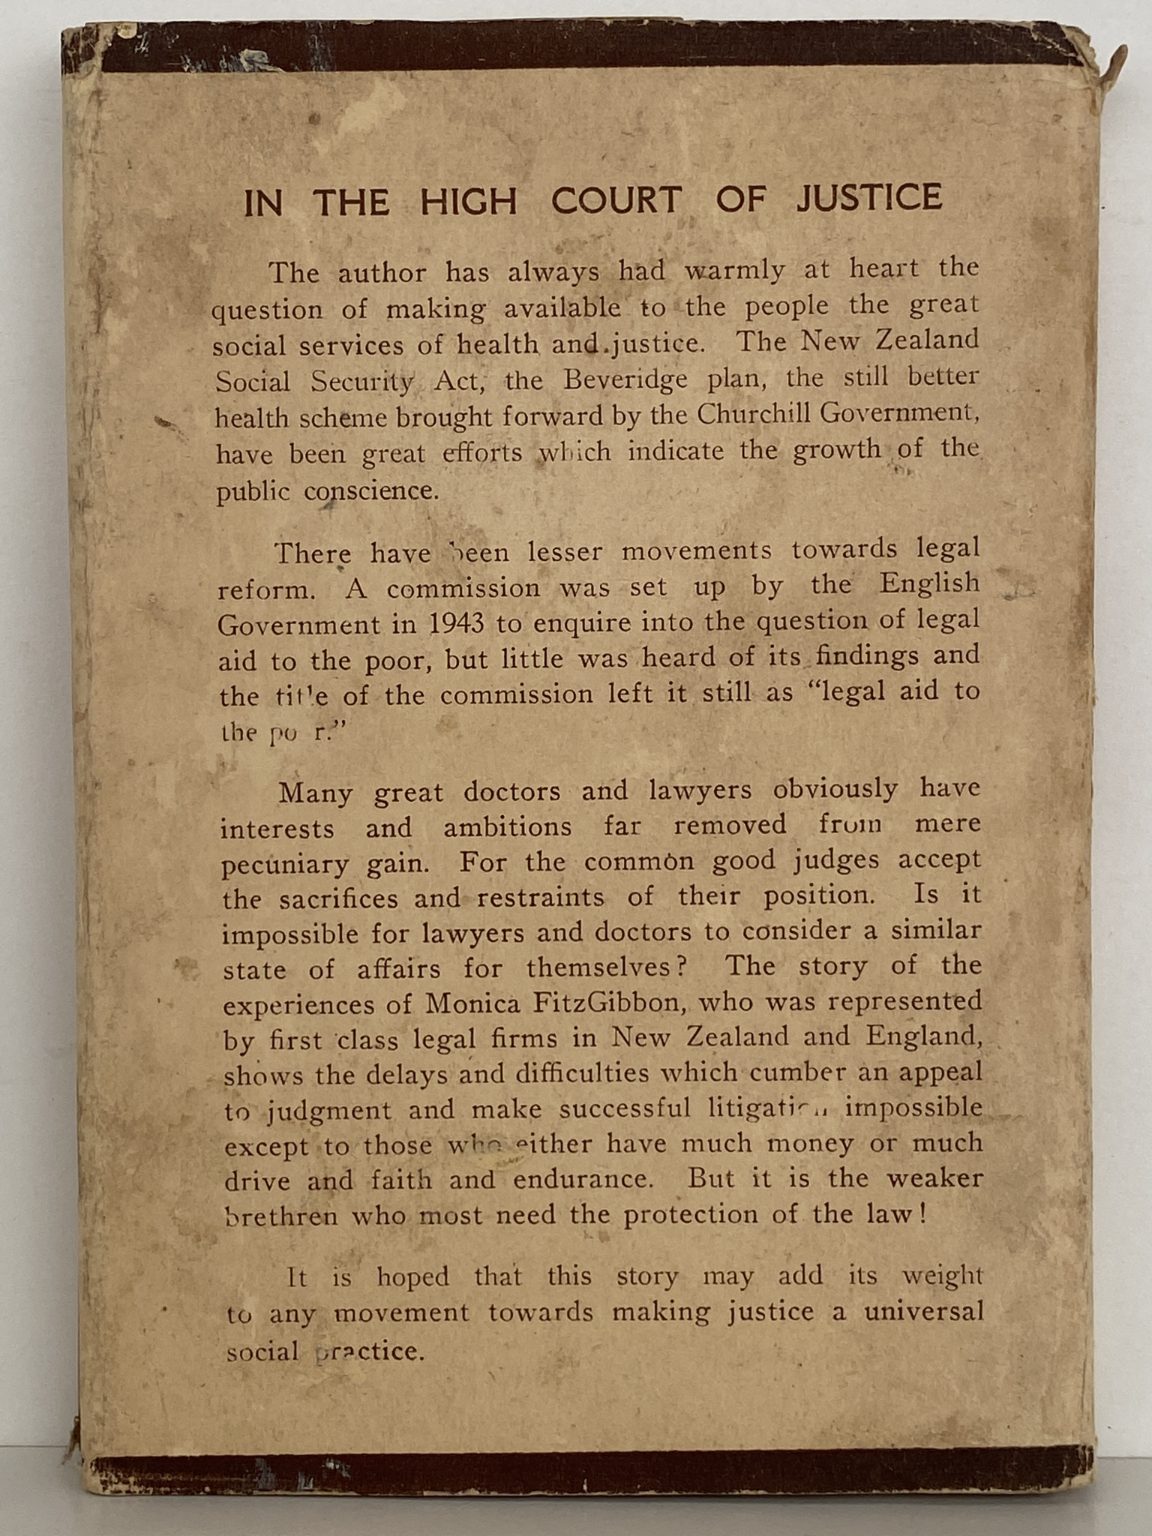 IN THE HIGH COURT OF JUSTICE
The author has always had warmly at heart the
question of making available to the people the great
social services of health and justice. The New Zealand
Social Security Act, the Beveridge plan, the still better
health scheme brought forward by the Churchill Government,
have been great efforts which indicate the growth of the
public conscience.
There have been lesser movements towards legal
reform. A commission was set up by the English
Government in 1943 to enquire into the question of legal
aid to the poor, but little was heard of its findings and
the title of the commission left it still as “legal aid to
the poor.”
Many great doctors and lawyers obviously have
interests and ambitions far removed from mere
pecuniary gain. For the common good judges accept
the sacrifices and restraints of their position. Is it
impossible for lawyers and doctors to consider a similar
state of affairs for themselves? The story of the
experiences of Monica FitzGibbon, who was represented
by first class legal firms in New Zealand and England,
shows the delays and difficulties which cumber an appeal
to judgment and make successful litigation impossible
except to those who either have much money or much
drive and faith and endurance. But it is the weaker
brethren who most need the protection of the law!
It is hoped that this story may add its weight
to any movement towards making justice a universal
social practice.